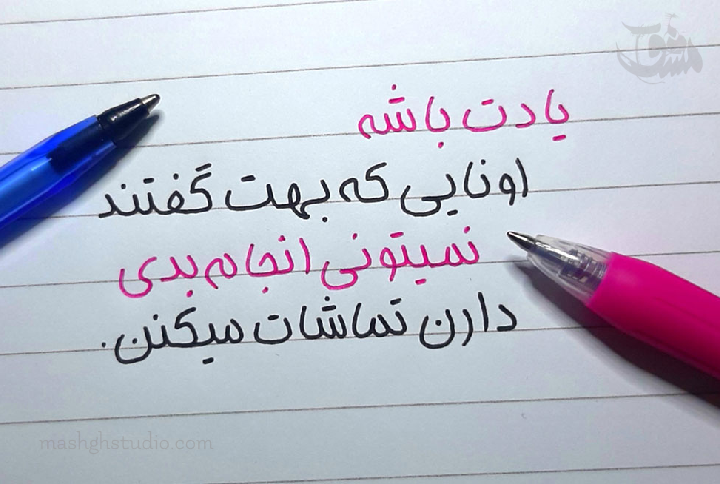 یادت باشه
اونایی که بهت گفتند
نمیتونی انجام بدی
دارن تماشات میکنن.
mashghstudio.com